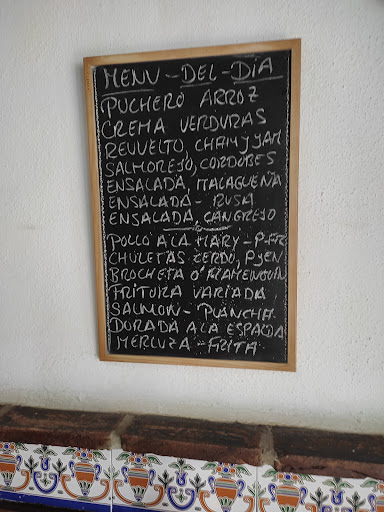 MENU - DEL - DIA
PUCHERO ARROZ
CREMA VERDURAS
REUVELTO, CHAM Y JAM
SALMOREJO, CORDOBES
ENSALADA, MALAGUEÑA
ENSALADA - RUSA
ENSALADA, CANGREJO
POLLO A LA MARY - P.FR
CHULETAS CERDO, P Y EN
BROCHETA O FLAMENQUIN
FRITURA VARIADA
SALMON - PLANCHA
DORADA A LA ESPALDA
MERLUZA - FRITA